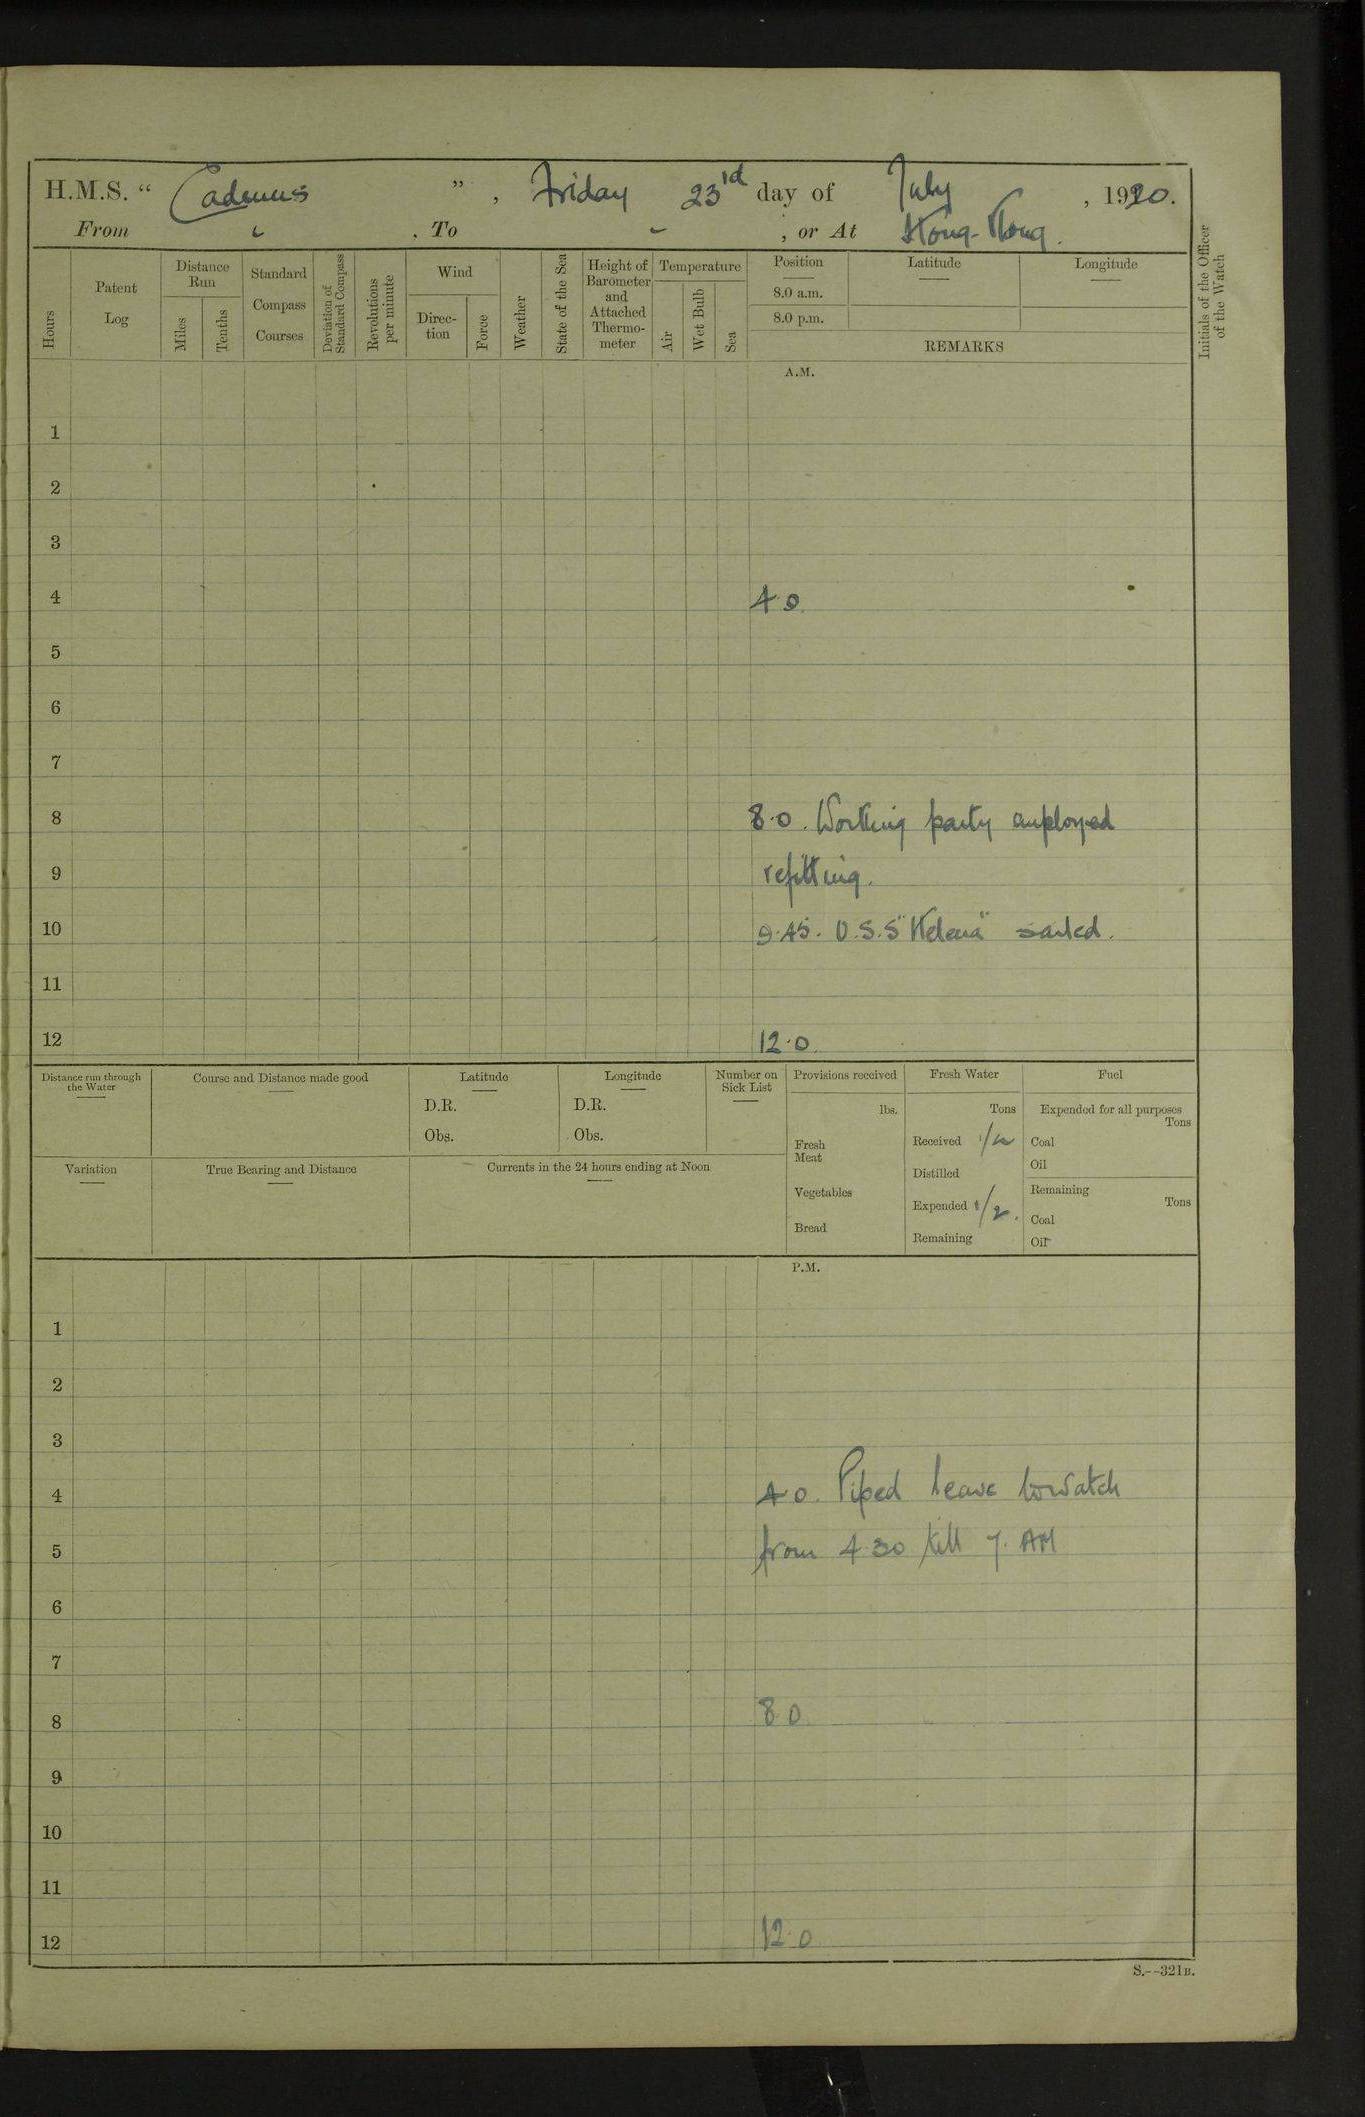 H.M.S. “ Cadmus ” , Friday 23rd day of July , 1920.
From - . To - ; or At Hong-Kong.
Hours
Patent Log
Distance Run
Miles
Tenths
Standard Compass Courses
Deviation of Standard Compass
Revolutions per minute
Wind
Direc-tion
Force
Weather
State of the Sea
Height of Barometer and Attached Thermo-meter
Temperature
Air
Wet Bulb
Sea
Position Latitude Longitude
8.0 a.m.
8.0 p.m.
REMARKS
Initials of the Officer of the Watch
A.M.
1
2
3
4 4.0
5
6
7
8 8.0. Working party employed
9 refitting.
10 9.45. U.S.S "Helena" sailed.
11
12 12.0
Distance run through the Water
Course and Distance made good
Latitude
D.R.
Obs.
Longitude
D.R.
Obs.
Number on Sick List
Variation
True Bearing and Distance
Currents in the 24 hours ending at Noon
Provisions received
lbs.
Fresh Meat
Vegetables
Bread
Fresh Water
Tons
Received 1/2
Distilled
Expended 1/2.
Remaining
Fuel
Expended for all purposes
Tons
Coal
Oil
Remaining
Tons
Coal
Oil
P.M.
1
2
3
4 4.0. Piped leave to watch
5 from 4.30 till 7. AM
6
7
8 8.0
9
10
11
12 12.0
S.--321B.